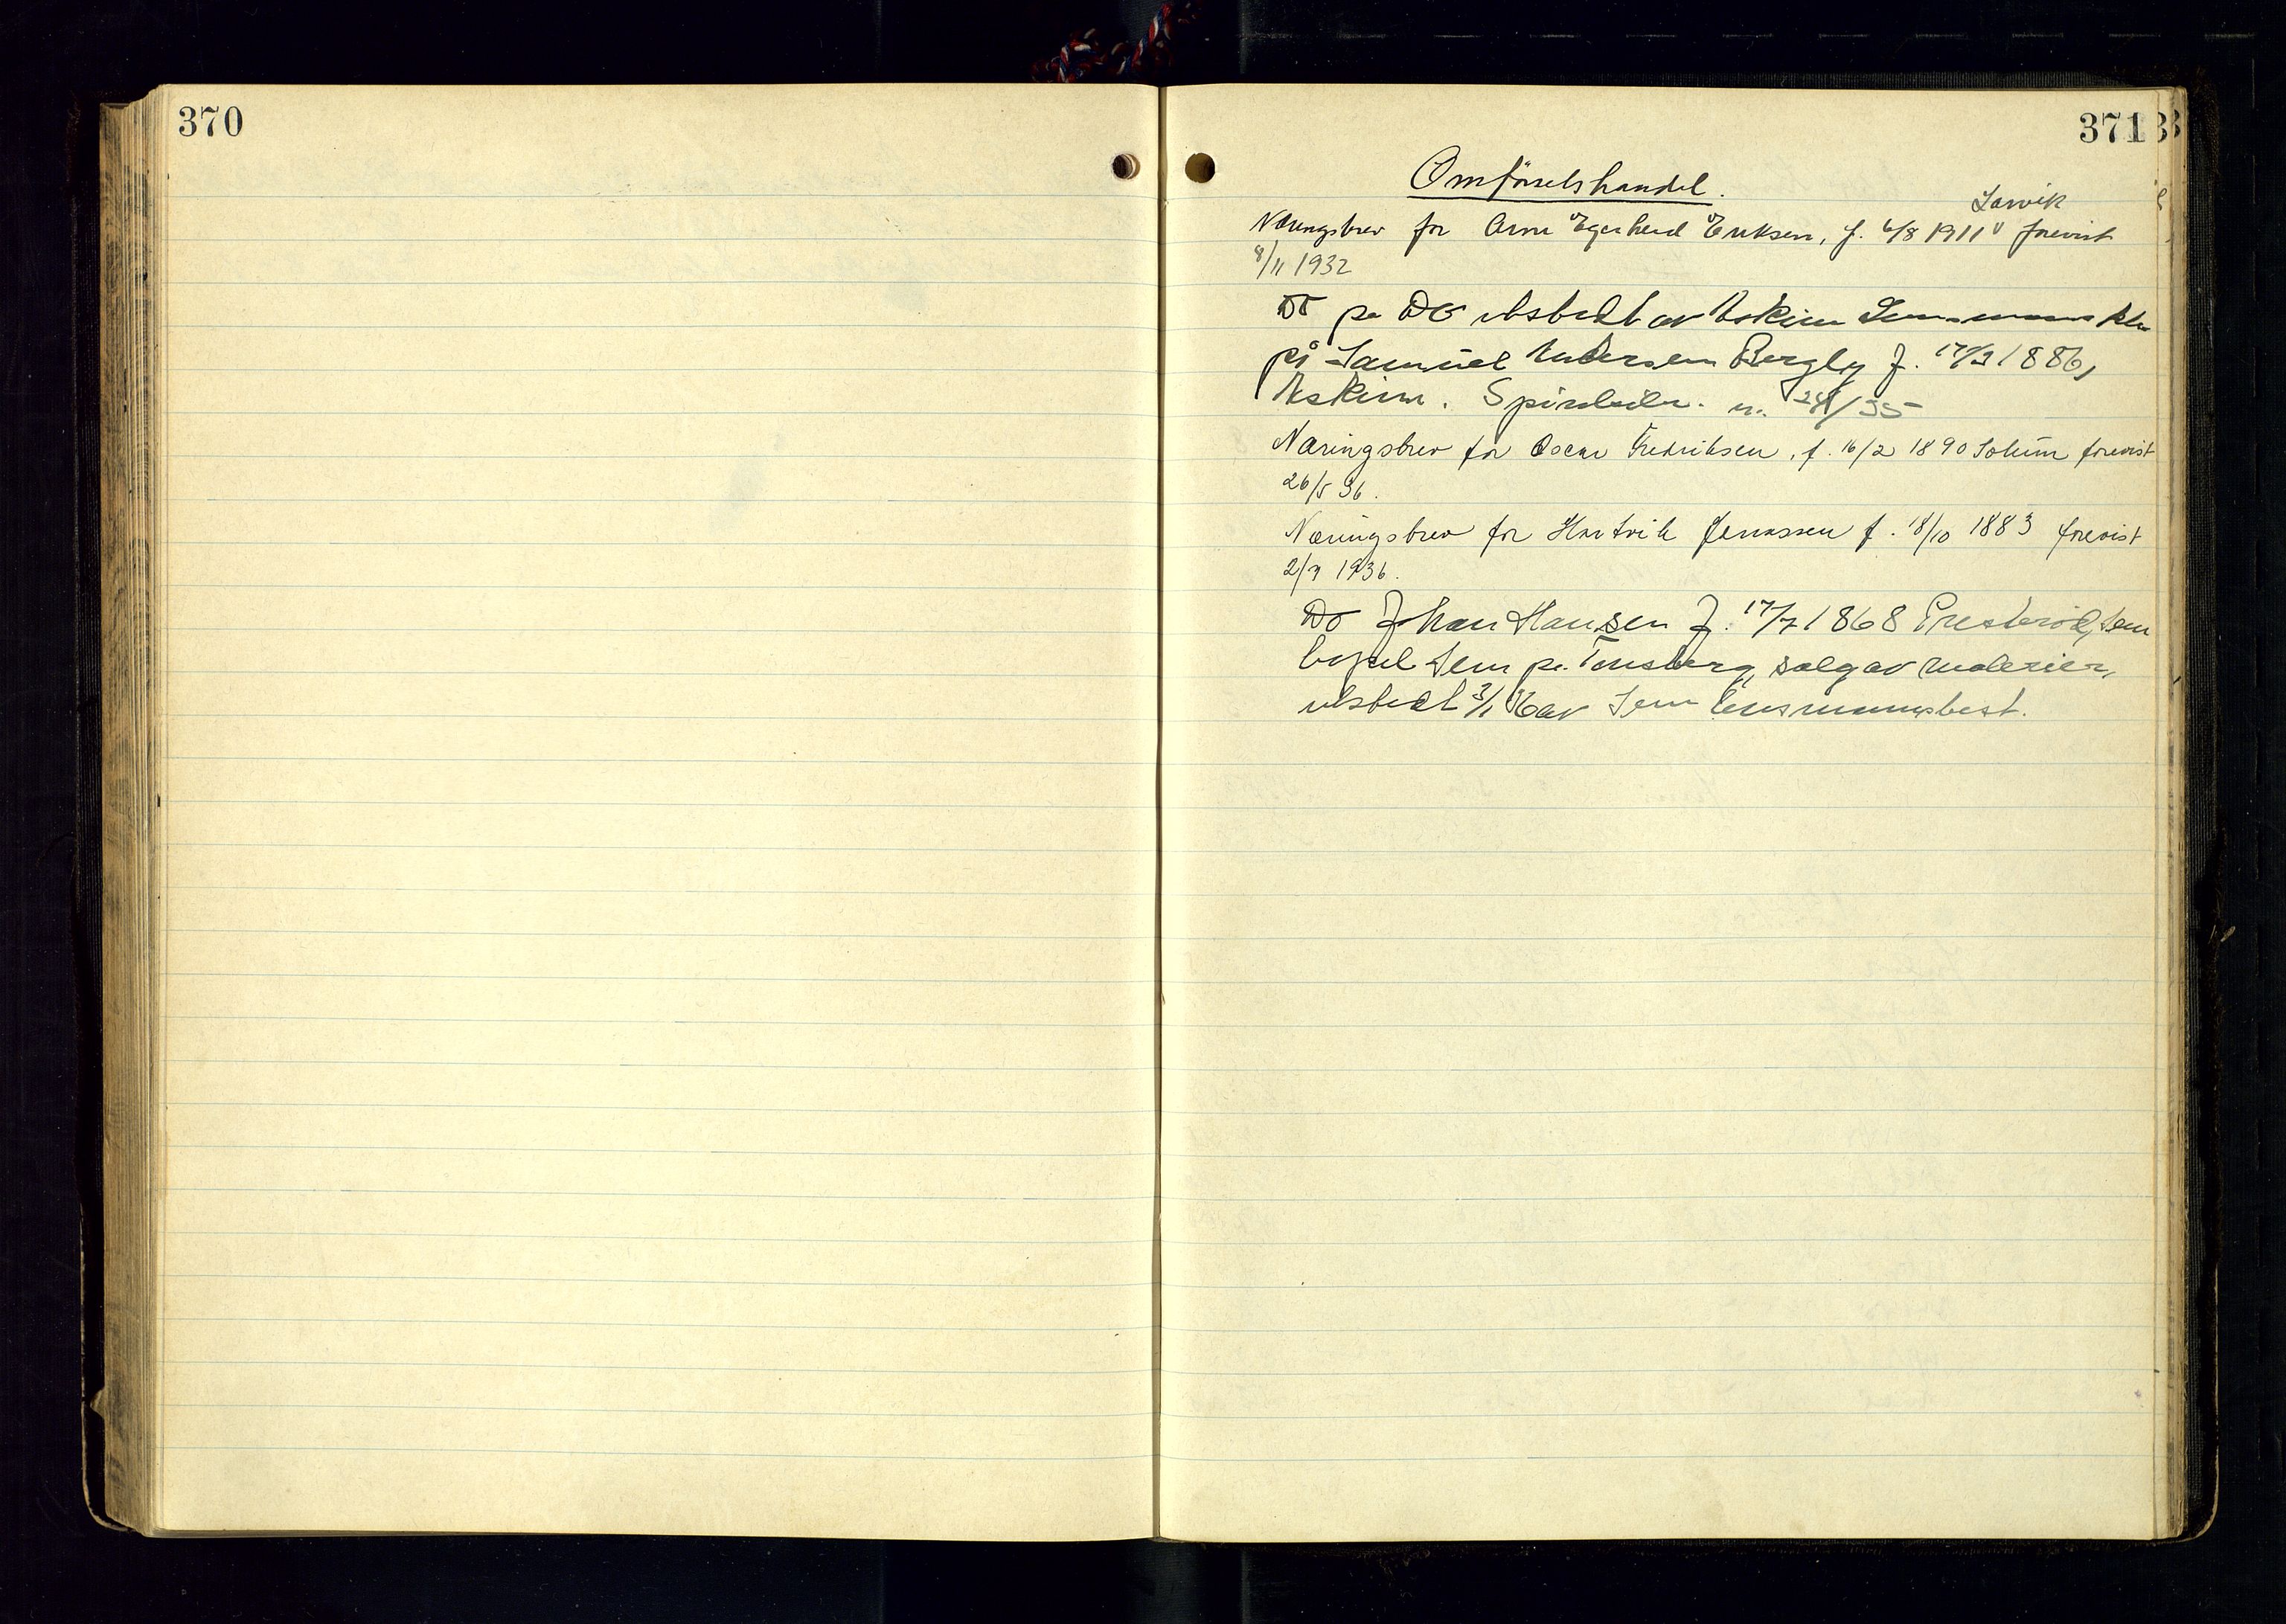 370
371
Omførselshandel.
Larvik
Næringsbrev for Arne Egerhend Eriksen, f. 6/8 1911 forevist
8/11 1932
Do pr Do utstedt av Askim
på Samuel Andersen Bergly f. 17/3 1886,
Askim. 24/ 35
Næringsbrev for Oscar Fredriksen, f. 16/2 1890 Solum forevist
26/5 36.
Næringsbrev for Hartvik Jenssen f. 18/10 1883 forevist
2/7 1936.
Do Johan Hansen f. 17/7 1868 Presterød, Sem
bopel Sem pr. Tønsberg, salg av malerier,
utstedt 3/1 36 av Sem lensmannsbest.